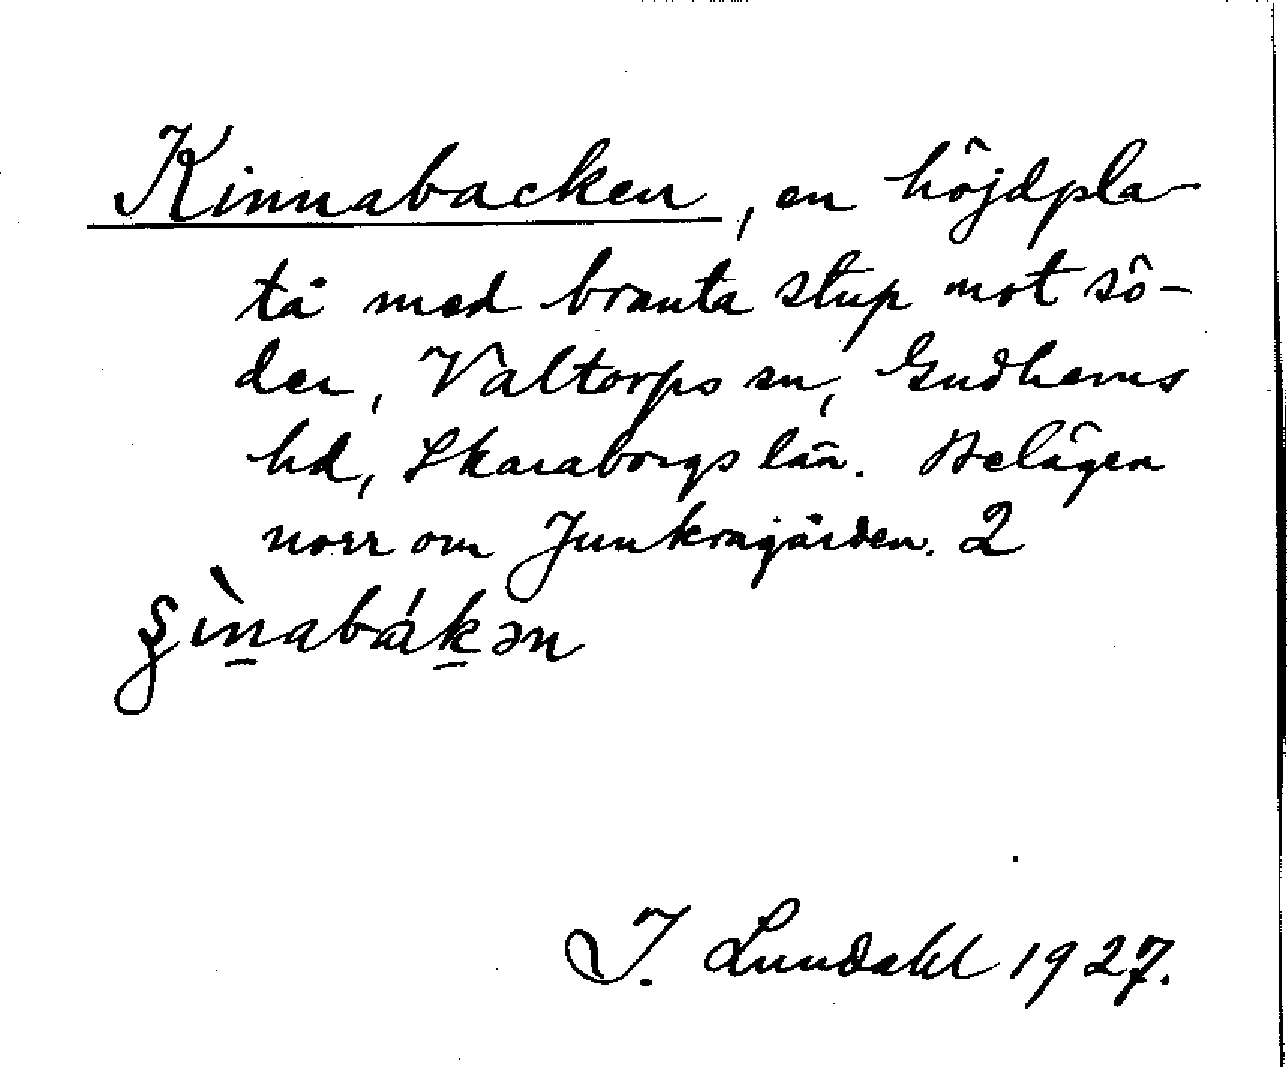 Kinnabacken, en höjdpla-
tå med branta stup mot sö-
der, Valtorps sn, Gudhems
hd, Skaraborgs län. Belägen
norr om Junkragården. 2
ʂìn̲abák̲ən
I. Lundahl 1927.